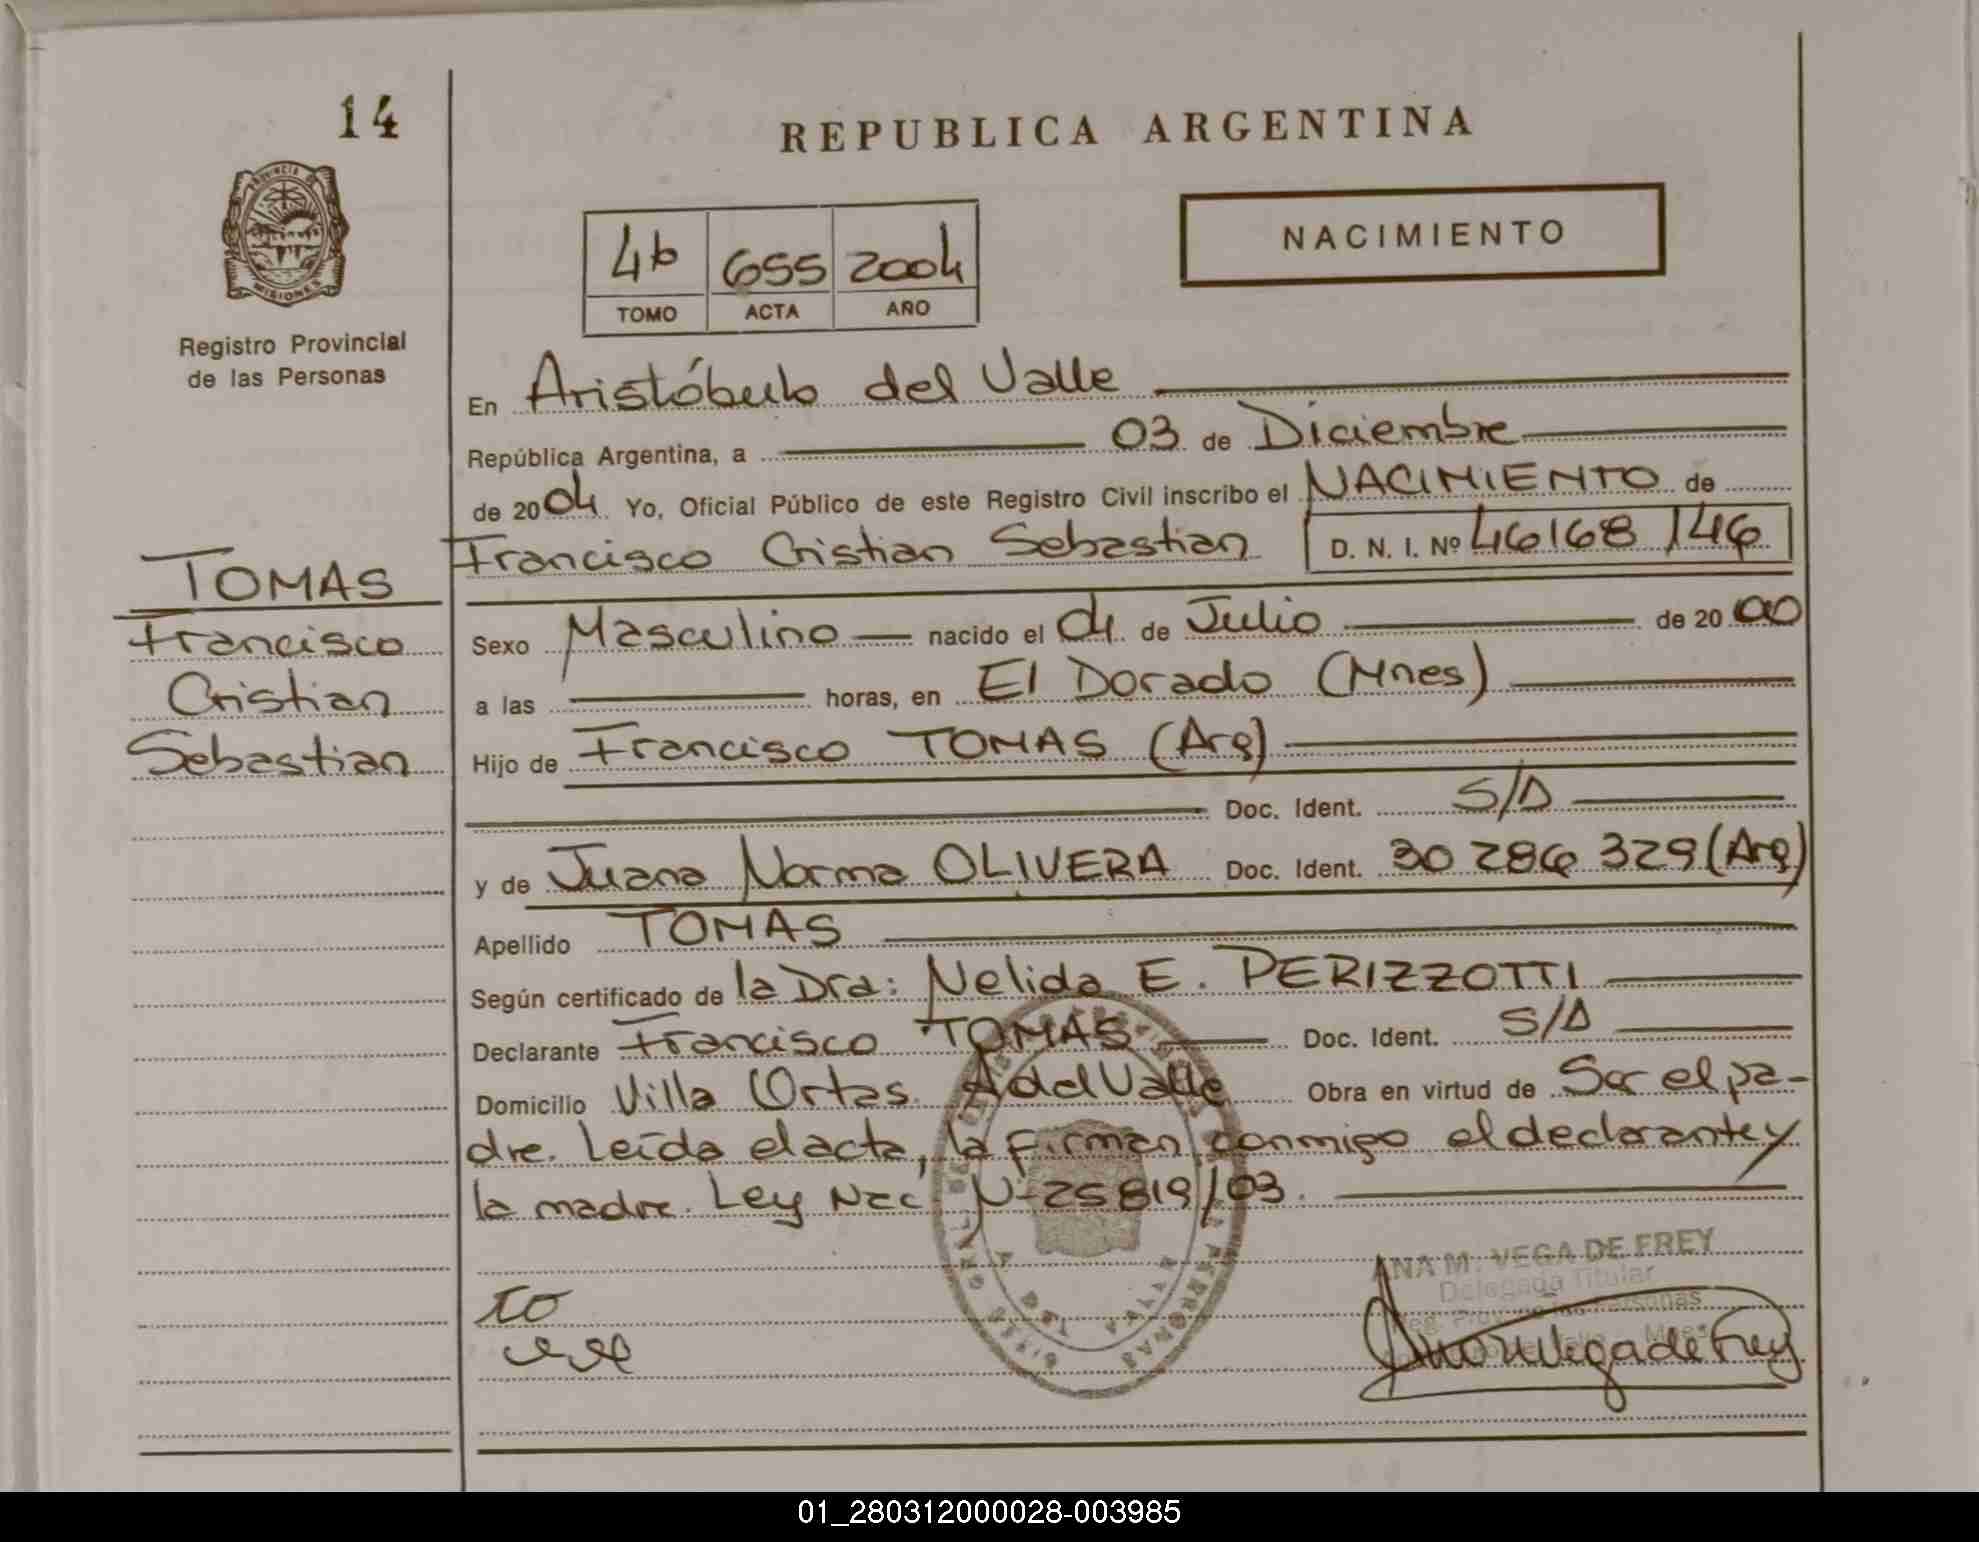 14
REPUBLICA ARGENTINA
PROVINCIA DE
MISIONES
NACIMIENTO
4b 655 2004
TOMO ACTA AÑO
Registro Provincial
de las Personas
En Aristóbulo del Valle
República Argentina, a 03 de Diciembre
de 2004 Yo, Oficial Público de este Registro Civil inscribo el NACIMIENTO de
Francisco Cristian Sebastian D. N. I. Nº 46168146
TOMAS
Francisco
Cristian
Sebastian
Sexo Masculino nacido el 04 de Julio de 2000
a las horas, en El Dorado (Mnes)
Hijo de Francisco TOMAS (Arg)
Doc. Ident. S/D
y de Juana Norma OLIVERA Doc. Ident. 30 286 329 (Arg)
Apellido TOMAS
Según certificado de la Dra: Nelida E. PERIZZOTTI
Declarante Francisco TOMAS Doc. Ident. S/D
Domicilio Villa Ortas. A del Valle Obra en virtud de Ser el pa-
dre. Leída el acta, la firman conmigo el declarante y
la madre. Ley Nac N- 25819/03.
ANA M. VEGA DE FREY
Delegada Titular
Reg. Prov. de las Personas
Ana M Vega de Frey
01_280312000028-003985